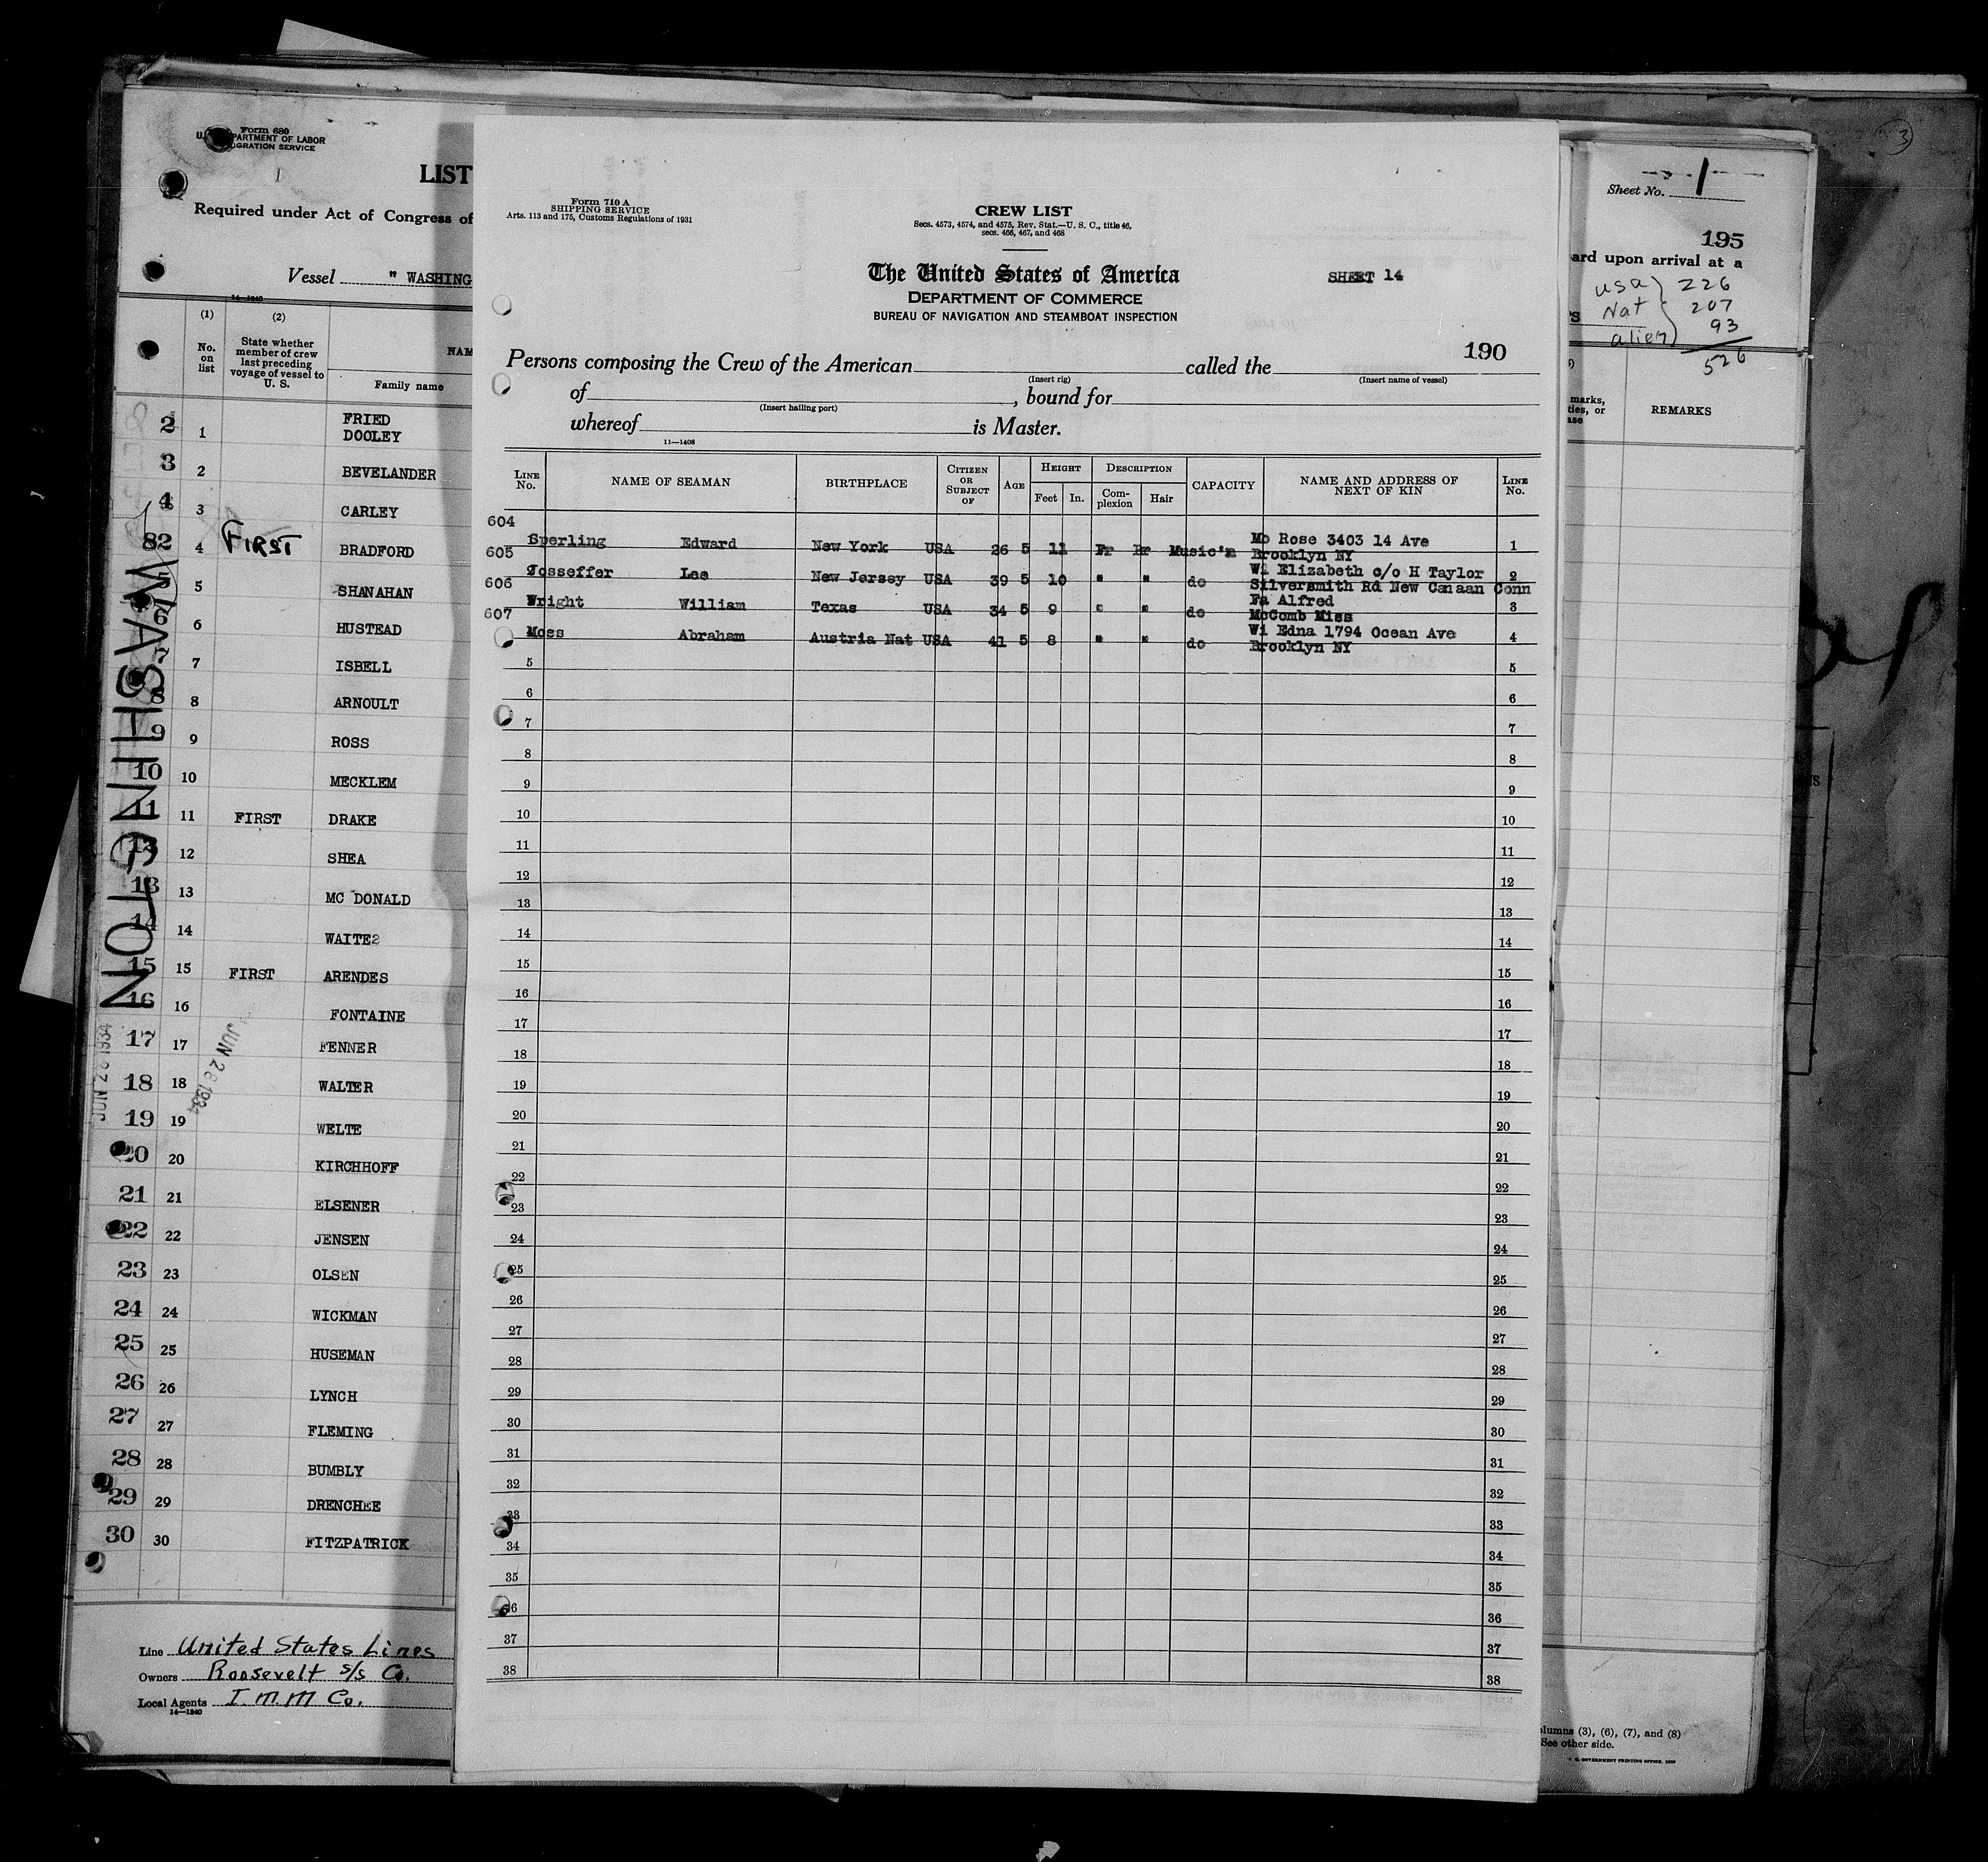 Form 680
U. S. DEPARTMENT OF LABOR
IMMIGRATION SERVICE
LIST
Required under Act of Congress of
Vessel " WASHING
14—1240
(1) (2)
No. on list
State whether member of crew last preceding voyage of vessel to U. S.
NAM
Family name
2 1 FRIED
DOOLEY
3 2 BEVELANDER
4 3 CARLEY
82 4 FIRST BRADFORD
5 SHANAHAN
6 HUSTEAD
7 ISBELL
8 8 ARNOULT
9 9 ROSS
10 10 MECKLEM
11 11 FIRST DRAKE
12 12 SHEA
13 13 MC DONALD
14 14 WAITE
15 15 FIRST ARENDES
16 16 FONTAINE
17 17 FENNER
18 18 WALTER
19 19 WELTE
20 20 KIRCHHOFF
21 21 ELSENER
22 22 JENSEN
23 23 OLSEN
24 24 WICKMAN
25 25 HUSEMAN
26 26 LYNCH
27 27 FLEMING
28 28 BUMBLY
29 29 DRENCHEE
30 30 FITZPATRICK
WASHINGTON
JUN 28 1934
JUN 28 1934
Line United States Lines
Owners Roosevelt s/s Co.
Local Agents I.M.M Co.
14—1240
Form 710 A
SHIPPING SERVICE
Arts. 113 and 175, Customs Regulations of 1931
CREW LIST
Secs. 4573, 4574, and 4575, Rev. Stat.—U. S. C., title 46,
secs. 466, 467, and 468
The United States of America
SHEET 14
DEPARTMENT OF COMMERCE
BUREAU OF NAVIGATION AND STEAMBOAT INSPECTION
190
Persons composing the Crew of the American called the
(Insert rig) (Insert name of vessel)
of , bound for
(Insert hailing port)
whereof is Master.
11—1408
LINE No. NAME OF SEAMAN BIRTHPLACE CITIZEN OR SUBJECT OF AGE HEIGHT Feet In. DESCRIPTION Complexion Hair CAPACITY NAME AND ADDRESS OF NEXT OF KIN LINE No.
604
Sperling Edward New York USA 26 5 11 Fr Br Music'n Mo Rose 3403 14 Ave 1
605 Brooklyn NY
Josseffer Lee New Jersey USA 39 5 10 " " do Wi Elizabeth c/o H Taylor 2
606 Silversmith Rd New Canaan Conn
Wright William Texas USA 34 5 9 " " do Fa Alfred 3
607 McComb Miss
Moss Abraham Austria Nat USA 41 5 8 " " do Wi Edna 1794 Ocean Ave 4
Brooklyn NY
5 5
6 6
7 7
8 8
9 9
10 10
11 11
12 12
13 13
14 14
15 15
16 16
17 17
18 18
19 19
20 20
21 21
22 22
23 23
24 24
25 25
26 26
27 27
28 28
29 29
30 30
31 31
32 32
33 33
34 34
35 35
36 36
37 37
38 38
3
Sheet No. 1
195
ard upon arrival at a
USA 226
Nat 207
alien 93
526
marks,
ties, or
ase
REMARKS
olumns (3), (6), (7), and (8)
See other side.
U. S. GOVERNMENT PRINTING OFFICE